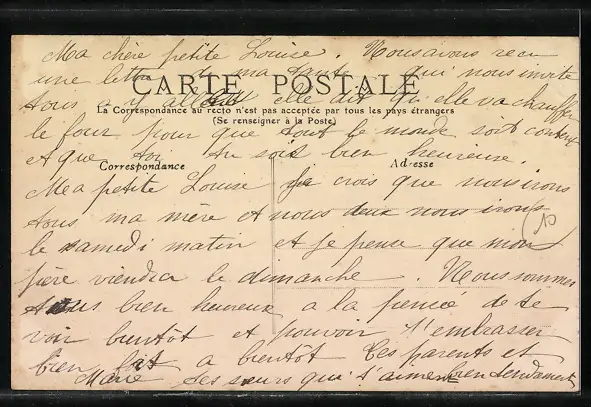 Ma chère petite Louise. Nous avons recu
une lettre de ma tante qui nous invite
CARTE POSTALE
tous a y aller elle dit qu'elle va chauffer
La Correspondance au recto n'est pas acceptée par tous les pays étrangers
(Se renseigner à la Poste)
le four pour que tout le monde soit content
et que toi tu sois bien heureuse.
Correspondance
Adresse
Ma petite Louise je crois que nous irons
tous ma mère et nous deux nous irons
10
le samedi matin et je pense que mon
père viendra le dimanche Nous sommes
tous bien heureux a la pensée de te
voir bientôt et pouvoir t'embrasser
bien fort a bientôt Tes parents et
Marie tes sœurs qui t'aiment bien tendrement